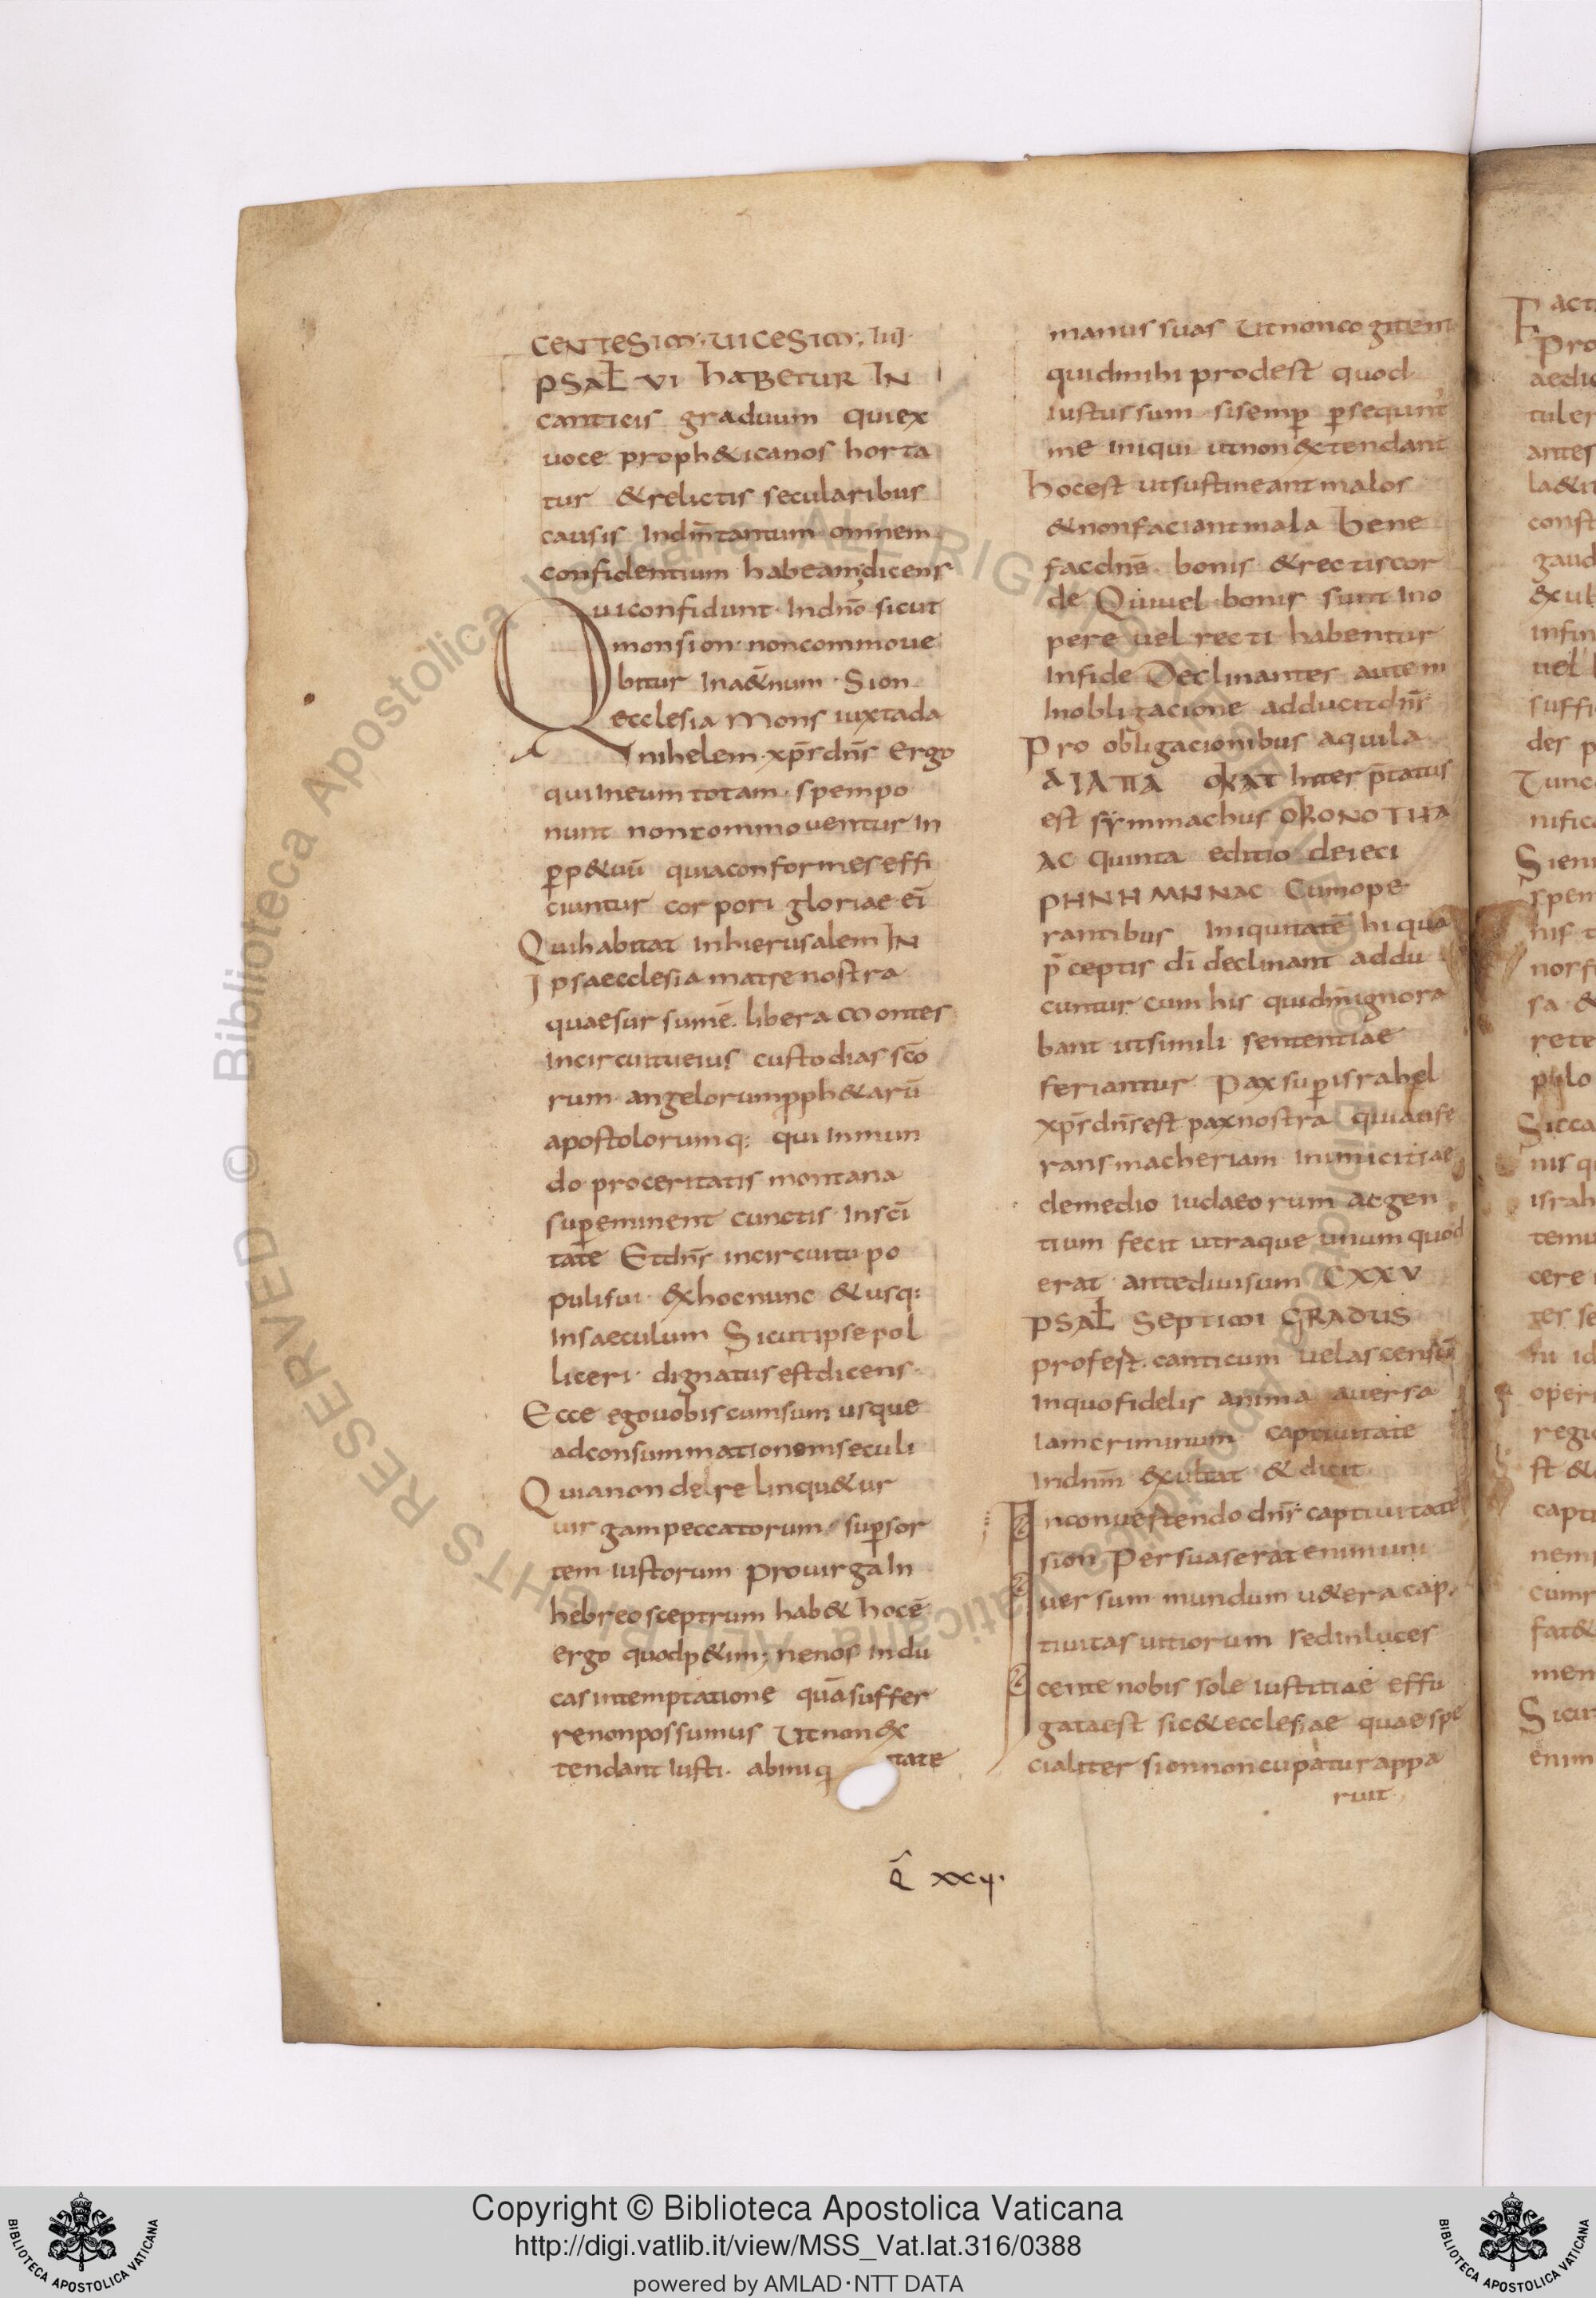 CENTESIMO. VICESIMO. IIII.
PSAL VI HABETUR IN
canticis graduum quiex
uoce proph&icanos horta
tur &relictis secularibus
causis Indn̄m tantum omnem
confidentium habeam; dicens
Quiconfidunt Indnō sicut
monsion noncommoue
bitur Ina&̄rnum Sion
ecclesia Mons iuxtada
nihelem xp̄s dn̄s Ergo
quiIneum totam spempo
nunt noncommouentur In
p̲p&uū quiaconformeseffi
ciuntur corpori gloriae eī
Quihabitat Inhierusalem IN
Ipsaecclesia matrenostra
quaesursumē. libera Montes
Incircuitueius custodias scō
rum angelorum p̲ph&arū
apostolorumq: quiInmun
do proceritatis montana
sup̲eminent cunctis Inscī
tate Etdn̄s incircuitu po
pulisui &xhocnunc &usq:
Insaeculum Sicutipsepol
liceri dignatusestdicens
Ecce egouobiscumsum usque
adconsummationemseculi
Quianondelrelinqu&ur
uirgampeccatorum sup̲sor
tem iustorum ProuirgaIn
hebreosceptrum hab& hocē
ergo quodp&im; nenos Indu
casintemptatione quāsuffer
renonpossumus Utnon&x
tendant Iusti abiniq tate
manus suas Utnoncogitent
quidmihi prodest quod
iustussum sisemp̲ p̲sequnt̄
me iniqui utnon&xtendant
hocest utsustineantmalos
&nonfaciantmala bene
facdn̄e bonis &rectiscor
de Quiuel bonis sunt Ino
pere uel recti habentur
Infide Declinantes autem
Inobligacione adducitdn̄s
Pro obligacionibus aquila
est symmachus
AC quinta editio deieci
Cumope
rantibus Iniquitatē hiqua
p̄ceptis dī declinant addu
cuntur cum his quidn̄mignora
bant utsimili sententiae
feriantur Paxsup̲israhel
xp̄sdn̄sest paxnostra quiaufe
ransmacheriam Inimicitiae
demedio iudaeorum acgen
tium fecit utraque unumquod
erat antediuisum CXXV
PSAL SEPTIMI GRADUS
profest. canticum uelascensū
Inquofidelis anima auersa
Iamcriminum captiuitate
Indn̄m &xultat &dicit
Inconuertendo dn̄s captiuitatē
sion Persuaserat enimuni
uersum mundum u&eracap
tiuitasuitiorum sedInluces
cente nobis sole iustitiae effu
gataest sic&ecclesiae quaespe
cialiter sionnoncupaturappa
ruit
Copyright © Biblioteca Apostolica Vaticana
http://digi.vatlib.it/view/MSS_Vat.lat.316/0388
powered by AMLAD·NTT DATA
BIBLIOTECA APOSTOLICA VATICANA
BIBLIOTECA APOSTOLICA VATICANA